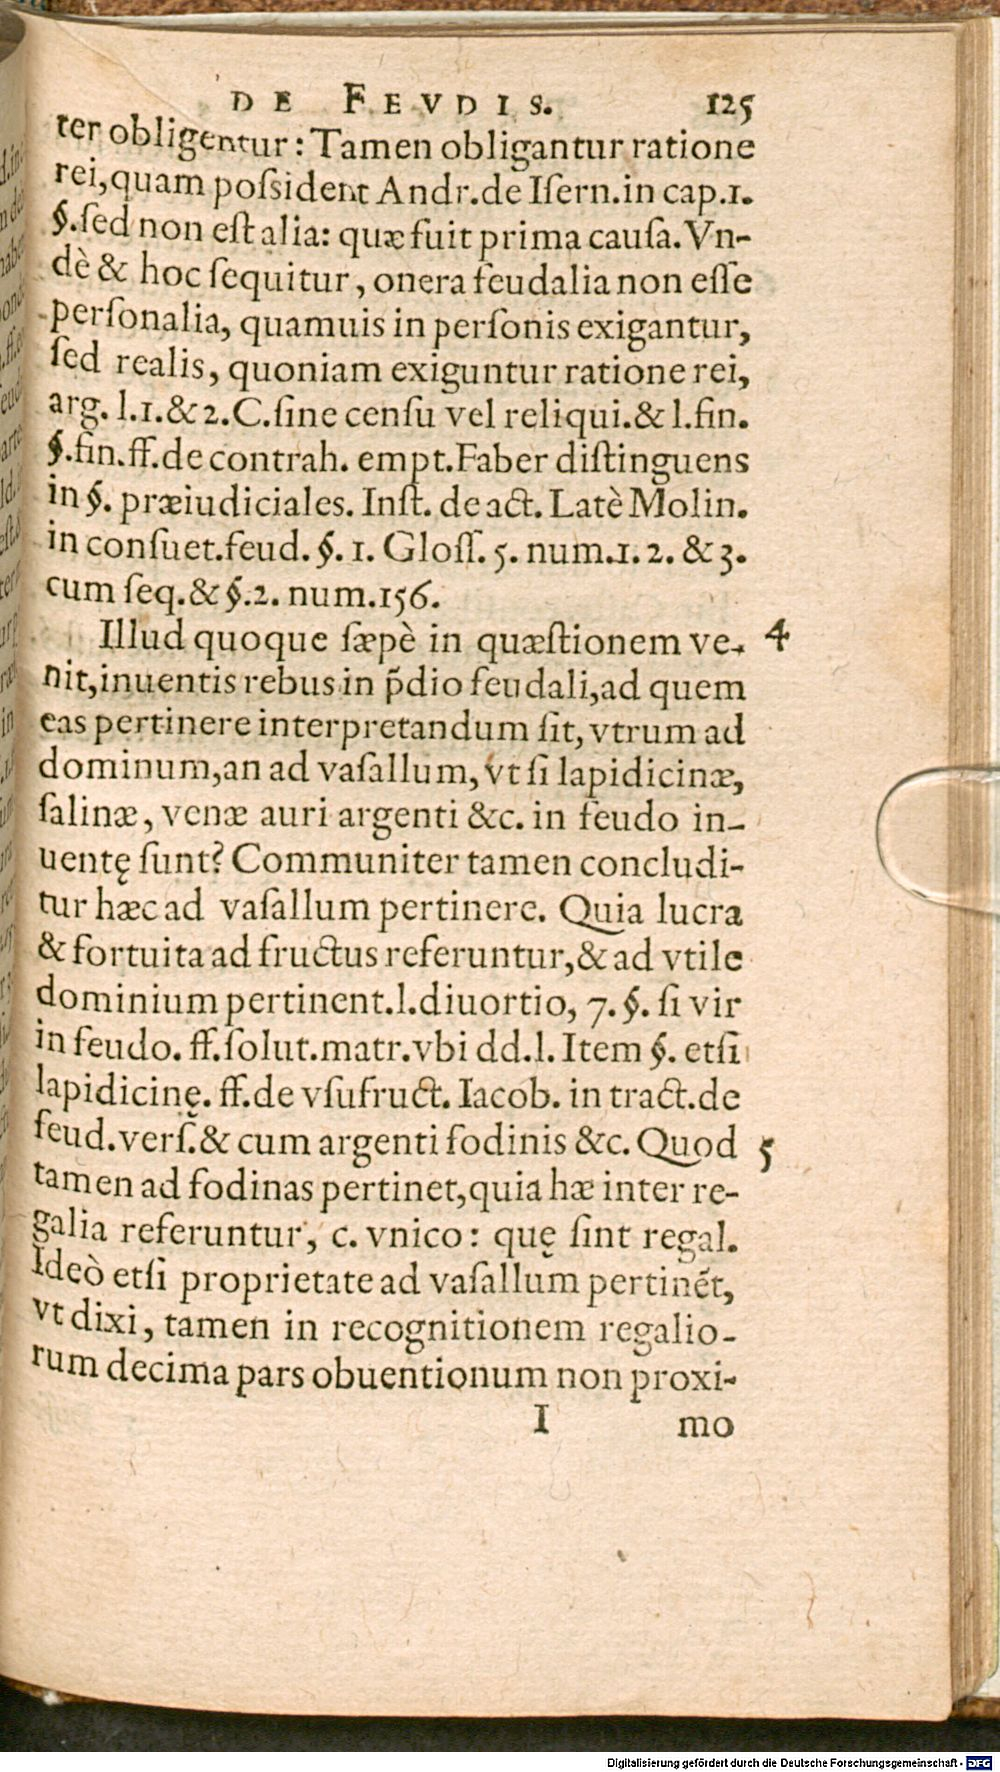 DE FEVDIS. 125
ter obligentur: Tamen obligantur ratione
rei, quam poſsident Andr. de Iſern. in cap. 1.
§. ſed non eſt alia: quæ fuit prima cauſa. Vn-
dè & hoc ſequitur, onera feudalia non eſſe
perſonalia, quamuis in perſonis exigantur,
ſed realis, quoniam exiguntur ratione rei,
arg. l. 1. & 2. C. ſine cenſu vel reliqui. & l. fin.
§. fin. ff. de contrah. empt. Faber diſtinguens
in §. præiudiciales. Inſt. de act. Latè Molin.
in conſuet. feud. §. 1. Gloſſ. 5. num. 1. 2. & 3.
cum ſeq. & §. 2. num. 156.
Illud quoque ſæpè in quæſtionem ve- 4
nit, inuentis rebus in p̃dio feudali, ad quem
eas pertinere interpretandum ſit, vtrum ad
dominum, an ad vaſallum, vt ſi lapidicinæ,
ſalinæ, venæ auri argenti &c. in feudo in-
uentę ſunt? Communiter tamen concludi-
tur hæc ad vaſallum pertinere. Quia lucra
& fortuita ad fructus referuntur, & ad vtile
dominium pertinent. l. diuortio, 7. §. ſi vir
in feudo. ff. ſolut. matr. vbi dd. l. Item §. etſi
lapidicinę. ff. de vſufruct. Iacob. in tract. de
feud. verſ. & cum argenti fodinis &c. Quod 5
tamen ad fodinas pertinet, quia hæ inter re-
galia referuntur, c. vnico: quę ſint regal.
Ideò etſi proprietate ad vaſallum pertinẽt,
vt dixi, tamen in recognitionem regalio-
rum decima pars obuentionum non proxi-
I mo
Digitalisierung gefördert durch die Deutsche Forschungsgemeinschaft - DFG